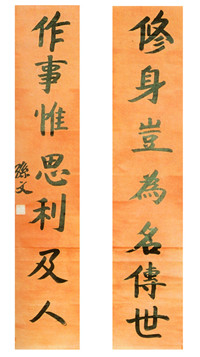 修身豈為名傳世
作事惟思利及人
孫文